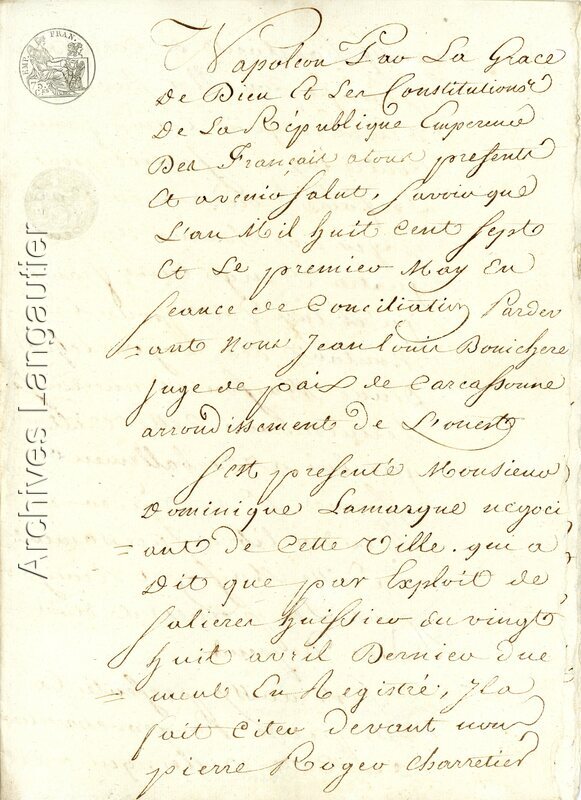 EMP. FRAN.
Napoleon Par La Grace
De Dieu Et Les Constitutions
De La République Empereur
Des Français atous presents
Et avenir Salut, Savoir que
L'an Mil huit Cent Sept
Et Le premier May En
Seance de Conciliation Parder
= ant Nous Jean Louis Bonichere
Juge de paix de Carcassonne
arrondissement de L'ouest
S'est presenté Monsieur
Dominique Lamarque negoci
= ant de Cette Ville. qui a
Dit que par Exploit de
Salieres huissier du vingt
huit avril Dernier due
= ment En Registré, Il a
fait Citer devant nous
pierre Roger Charretier
Archives Langautier